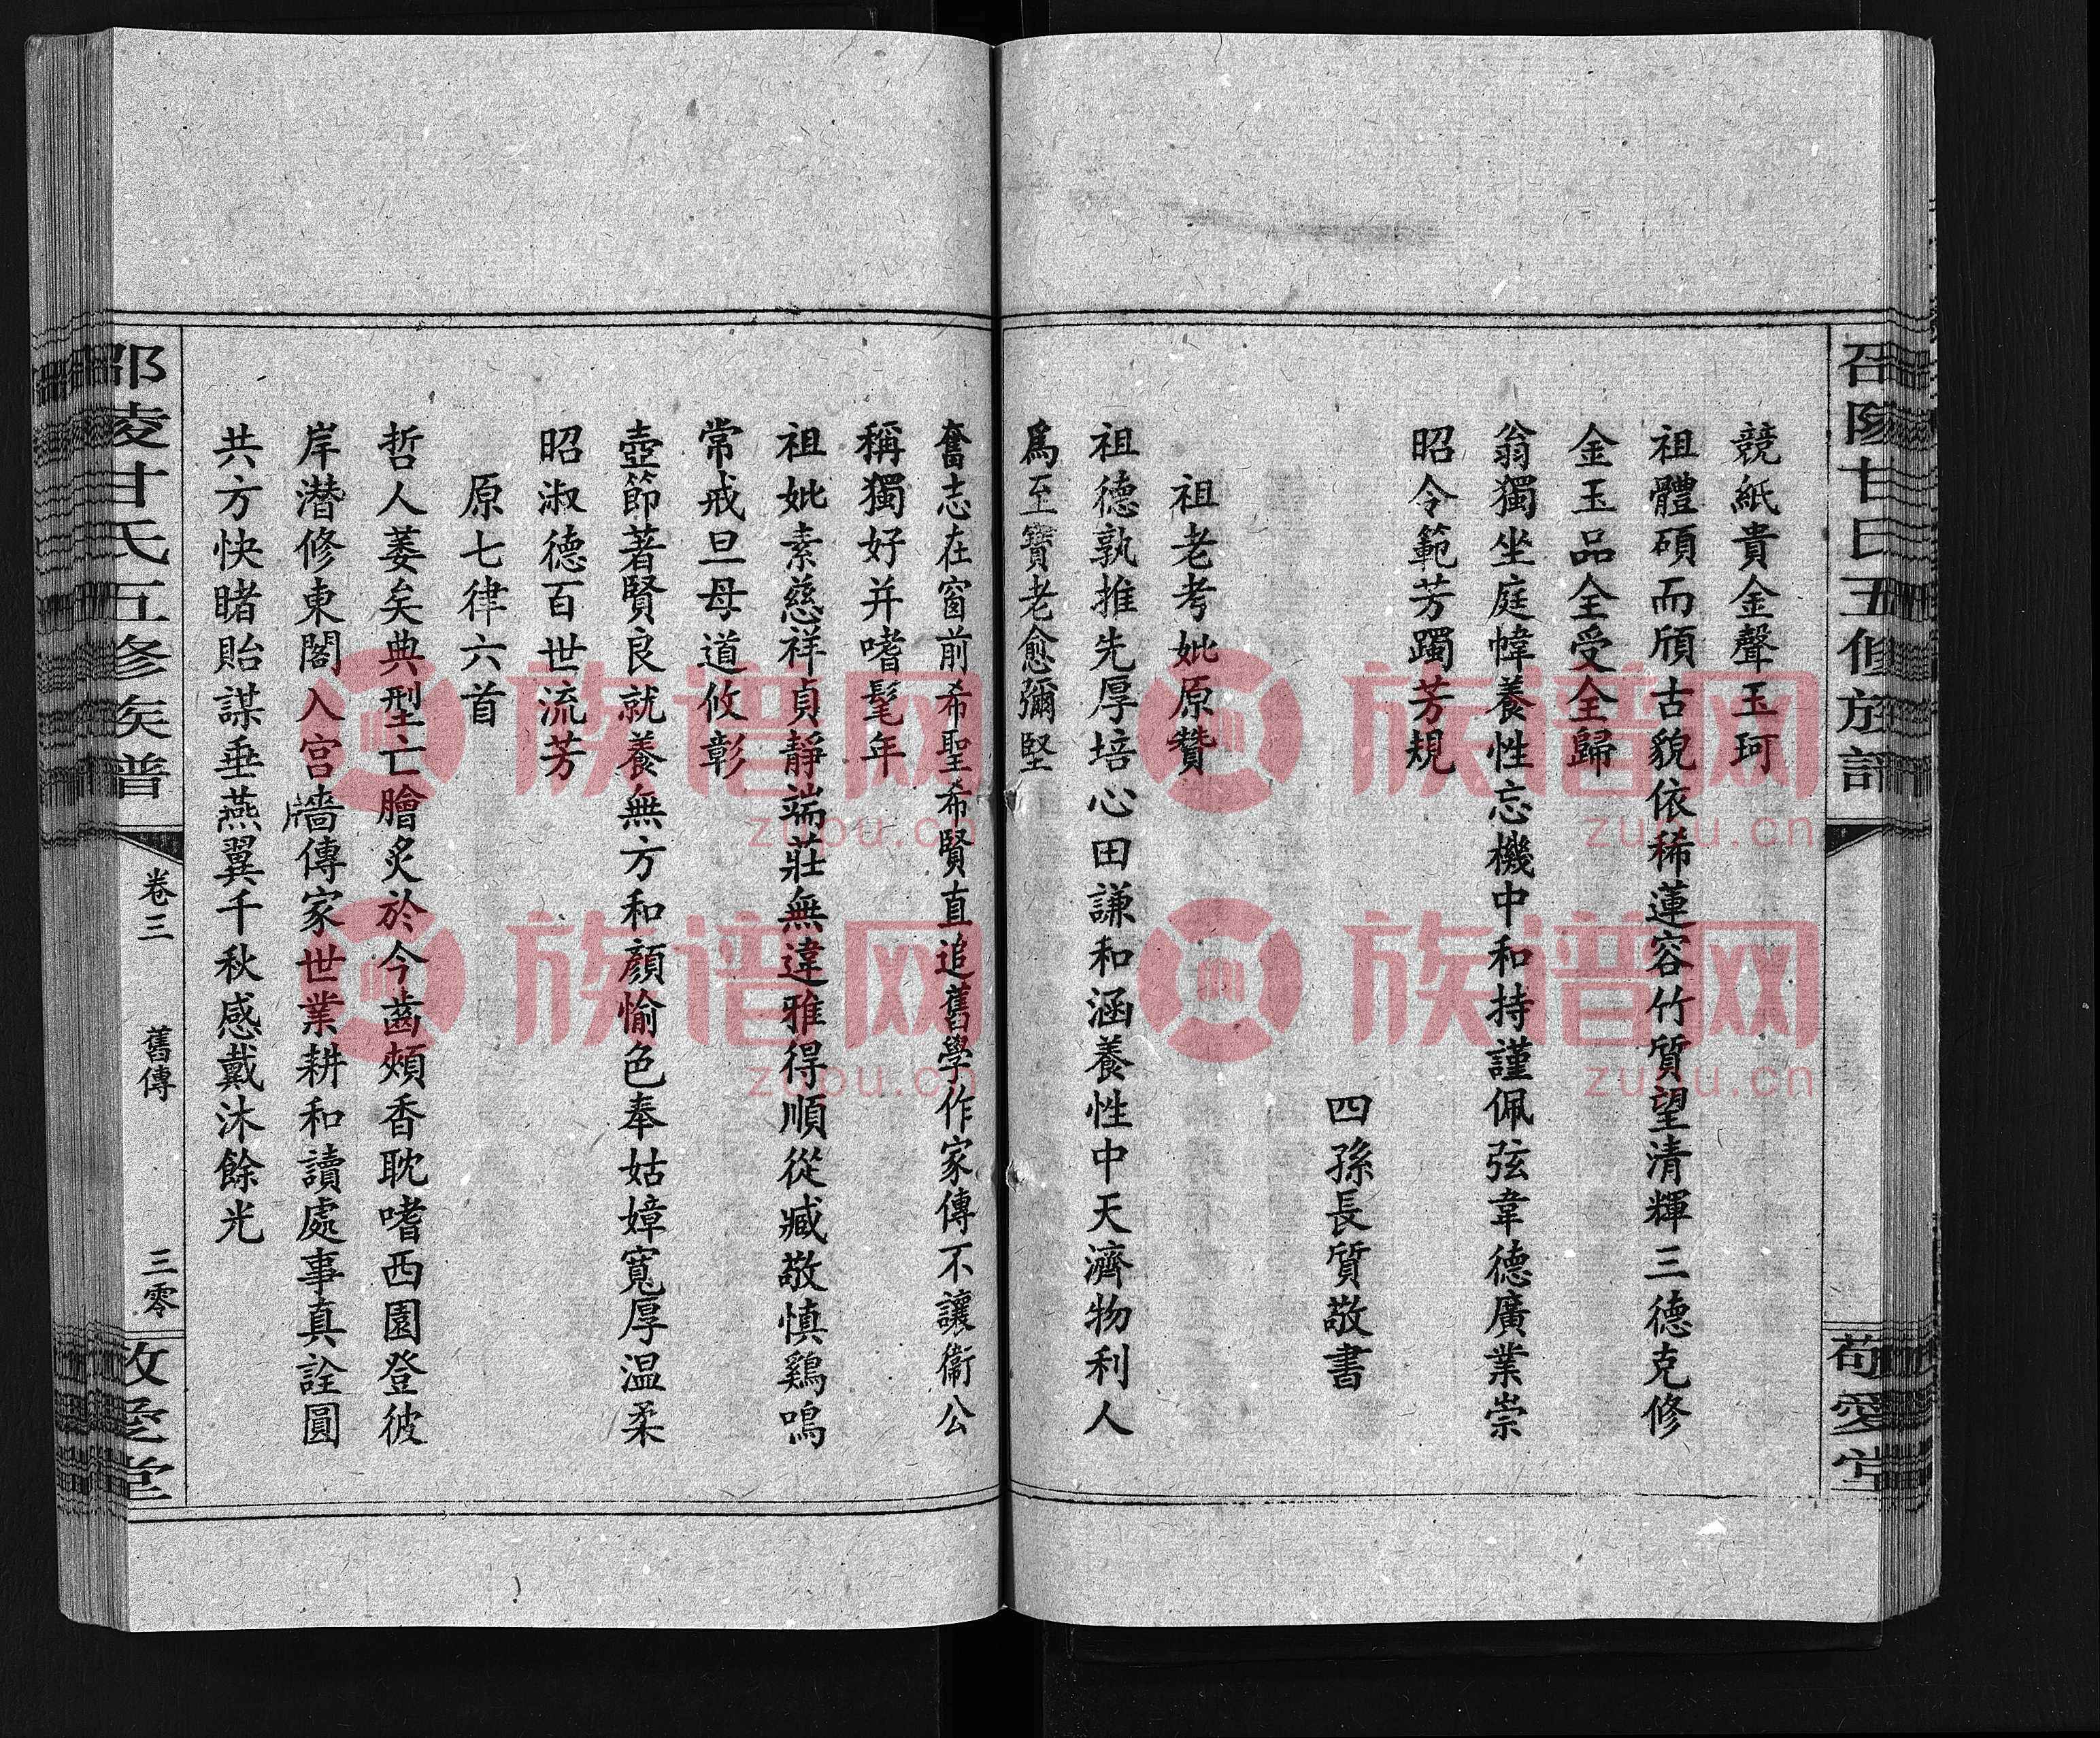 邵陵甘氏五修族譜
敬愛堂
競紙貴金聲玉珂
祖體碩而頎古貌依稀蓮容竹質望清輝三德克修
金玉品全受全歸
翁獨坐庭幃養性忘機中和持謹佩弦韋德廣業崇
昭令範芳躅芳規
四孫長質敬書
祖老考妣原贊
祖德孰推先厚培心田謙和涵養性中天濟物利人
爲至寶老愈彌堅
奮志在窗前希聖希賢直追舊學作家傳不讓衞公
稱獨好并嗜髦年
祖妣素慈祥貞靜端莊無違雅得順從臧敬慎鷄鳴
常戒旦母道攸彰
壺節著賢良就養無方和顔愉色奉姑嫜寬厚温柔
昭淑德百世流芳
原七律六首
哲人萎矣典型亡膾炙於今齒頰香耽嗜西園登彼
岸潛修東閣入宮牆傳家世業耕和讀處事真詮圓
共方快睹貽謀垂燕翼千秋感戴沐餘光
邵陵甘氏五修族譜
卷三
舊傳
三零
敬愛堂
族谱网
zupu.cn
族谱网
zupu.cn
族谱网
zupu.cn
族谱网
zupu.cn